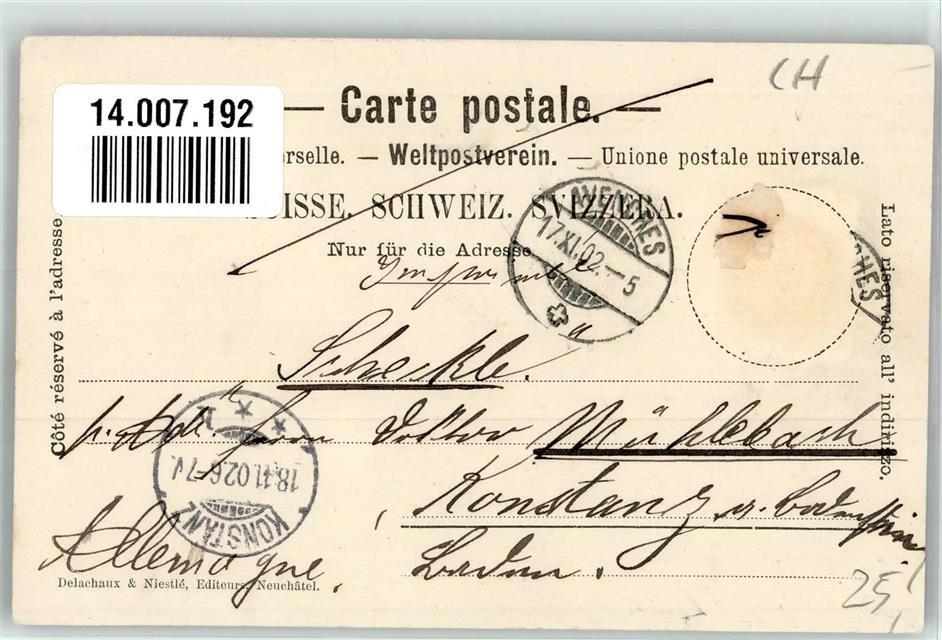 CH
14.007.192
— Carte postale. —
erselle. — Weltpostverein. — Unione postale universale.
SUISSE. SCHWEIZ. SVIZZERA.
Nur für die Adresse
Côté réservé à l'adresse.
Lato riservato all' indirizzo.
AVENCHES
17.XI.02.—5
CHES
Imprimé
Scheckle.
p. Adr. Herrn Doktor Mühlebach
18.11.02.6-7N.
KONSTANZ
Konstanz a. Bodensee
Allemagne. Baden.
Delachaux & Niestlé, Editeurs, Neuchâtel.
25